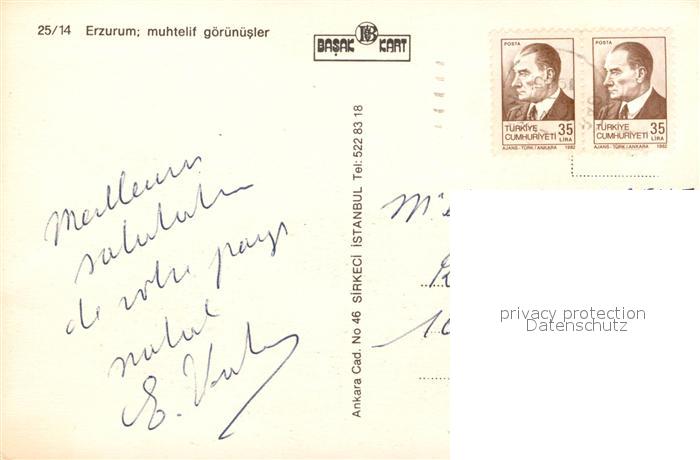 25/14 Erzurum; muhtelif görünüşler
BAŞAK KART
POSTA
TÜRKİYE
CUMHURİYETİ
35
LİRA
AJANS-TÜRK/ANKARA 1982
POSTA
TÜRKİYE
CUMHURİYETİ
35
LİRA
AJANS-TÜRK/ANKARA 1982
Ankara Cad. No 46 SİRKECİ İSTANBUL Tel: 522 83 18
Meilleures
salutations
de votre pays
natal
E.
privacy protection
Datenschutz